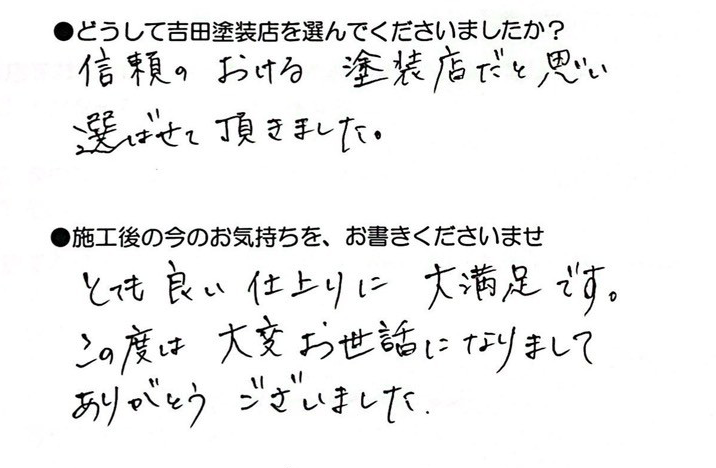 ●どうして吉田塗装店を選んでくださいましたか？
信頼のおける 塗装店だと思い
選ばせて頂きました。
●施工後の今のお気持ちを、お書きくださいませ
とても良い仕上りに 大満足です。
この度は 大変お世話になりまして
ありがとう ございました.